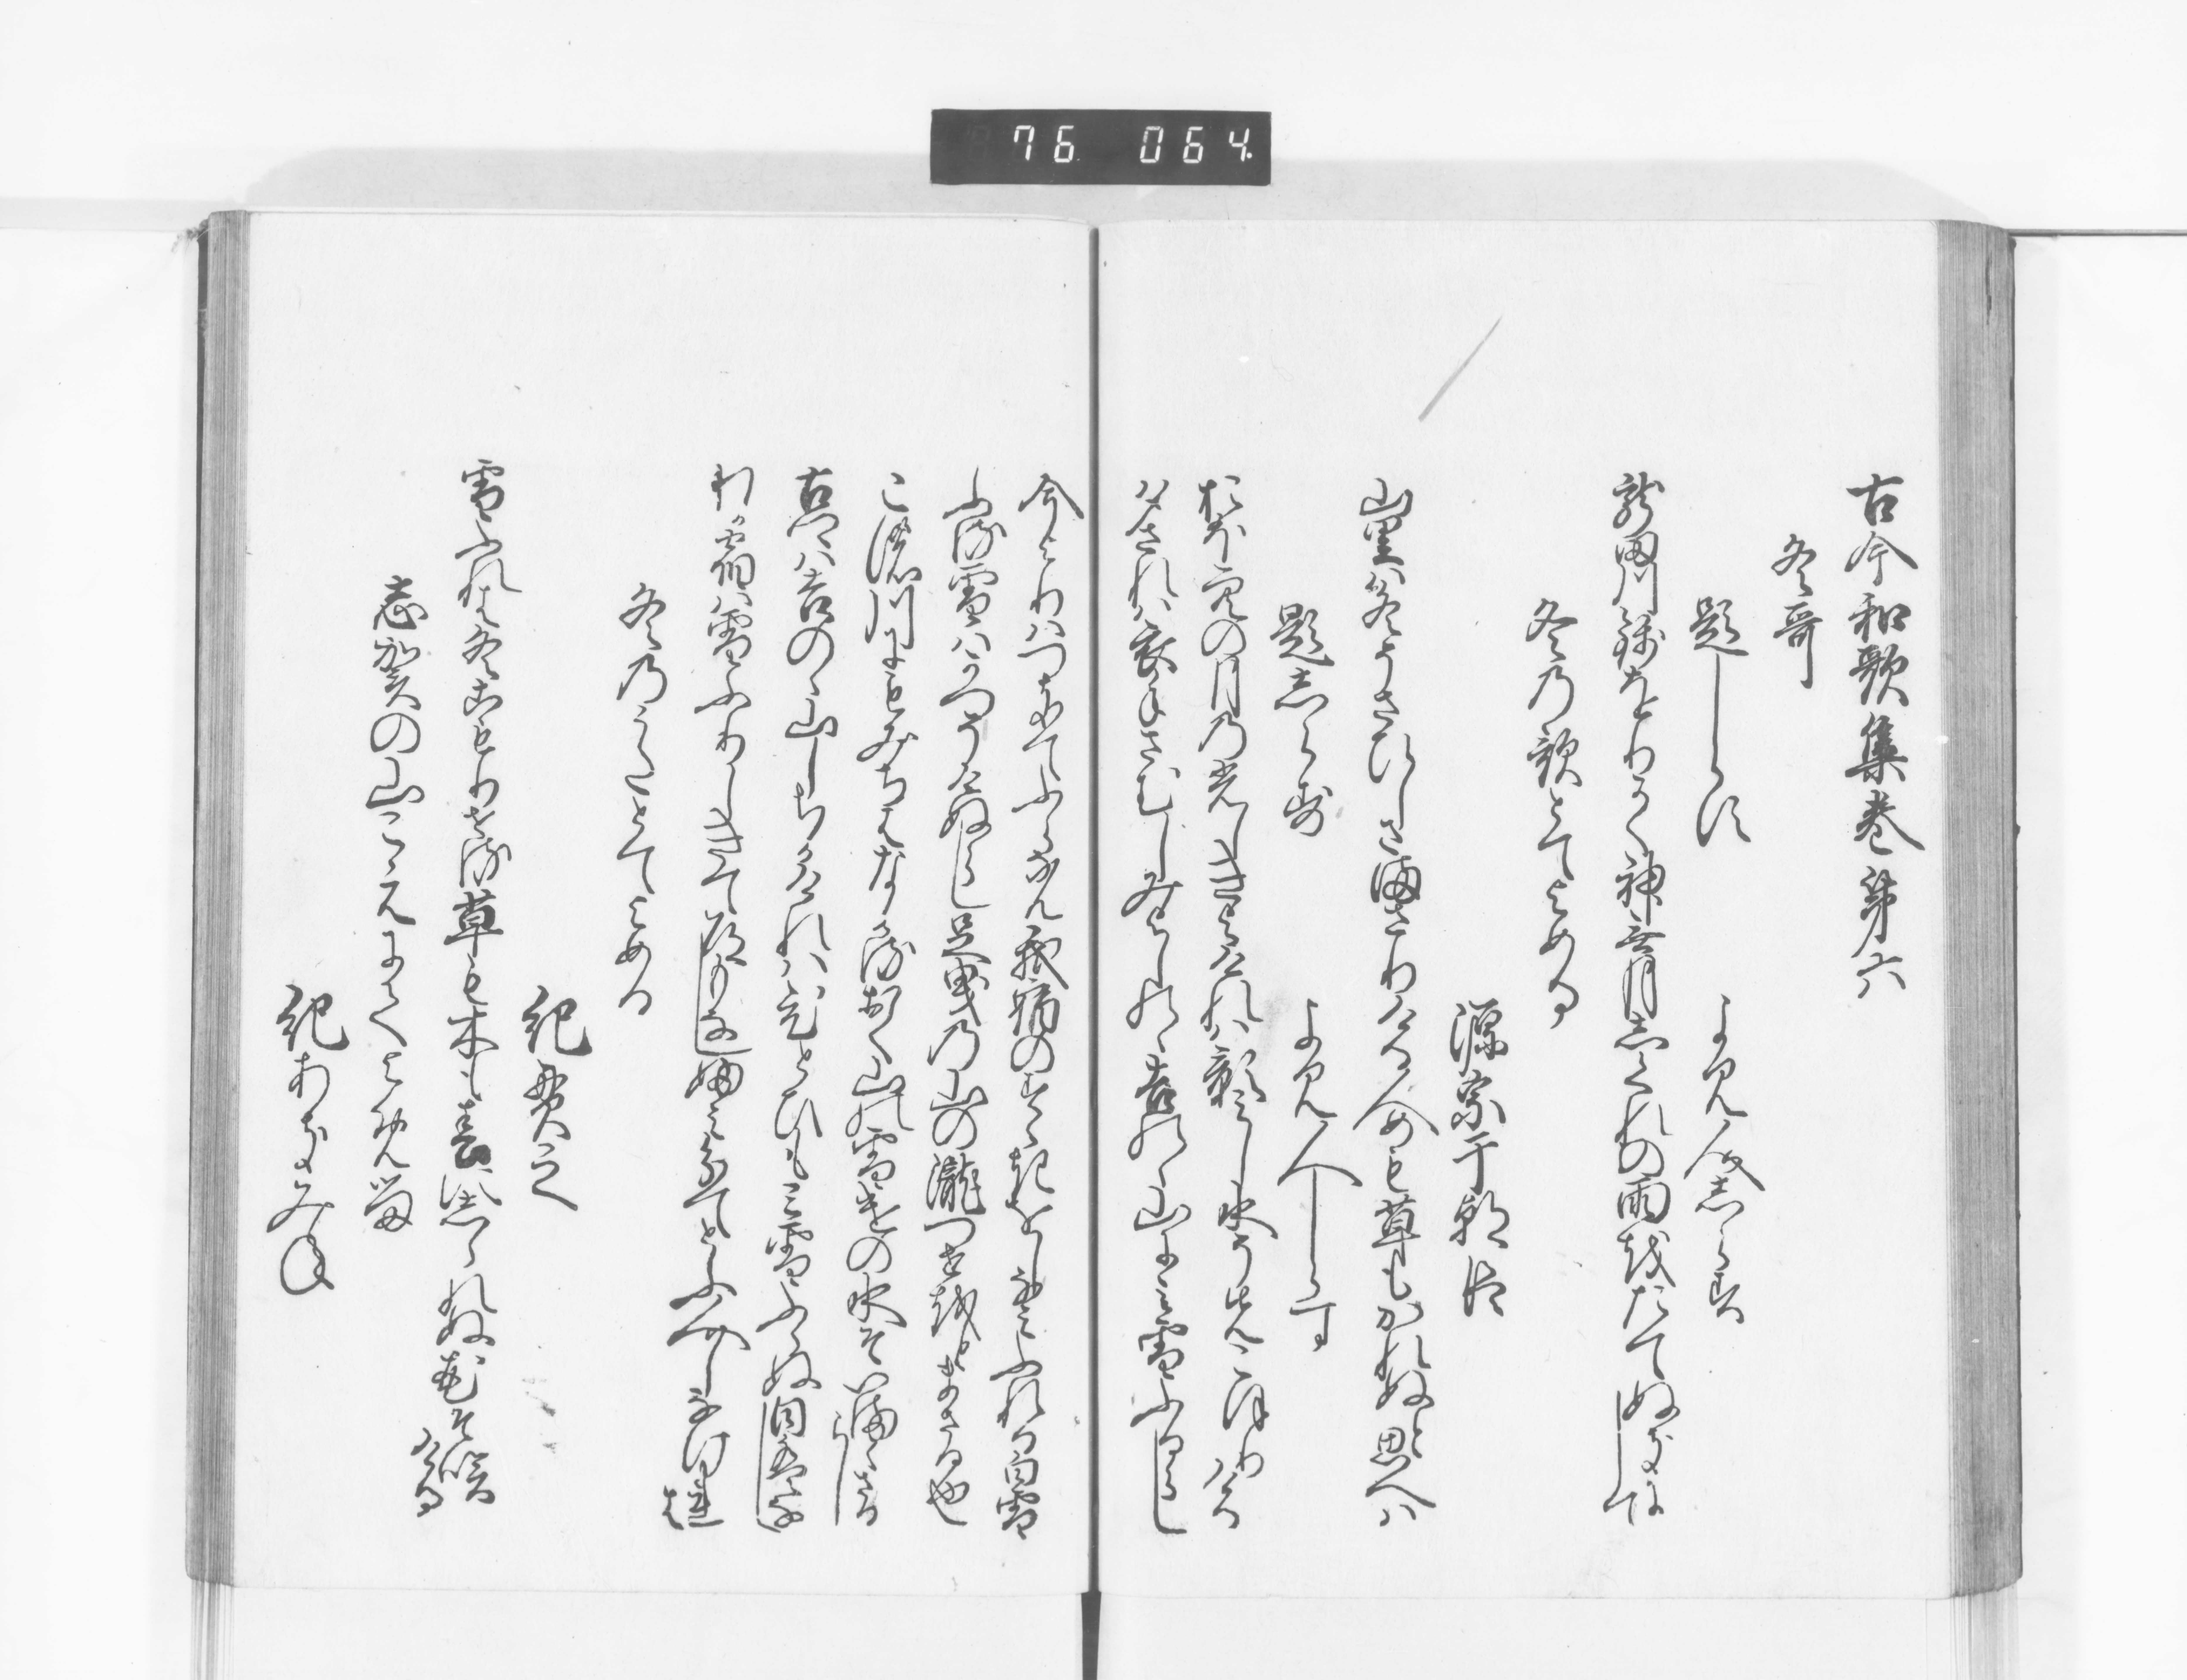 76 064
古今和歌集巻第六
冬哥
題しらす
よみ人志らす
龍田川錦をりかく神無月志くれの雨越たてぬきにして
冬乃歌とてよめる
源宗于朝臣
山里は冬そさひしさ満さりける人めも草もかれぬと思へハ
題志らす
よみ人しらす
おほ空の月乃光しきよけれハ影みし水そ先こほりける
夕されハ衣手さむしみよしのゝ吉のゝ山にみ雪ふるらし
今よりハつきてふらなん我宿のすゝき越しなみふれる白雪
ふる雪ハかつそけぬらし足曳乃山の瀧つせ越とまさる也
この川にもみちはなかるおく山の雪けの水そいま満さるらし
古郷ハ吉のゝ山しちかけれハひとひもみ雪ふらぬ日ハなし
わか宿ハ雪ふりしきて道もなしふみわけてとふ人しなけれは
冬乃うたとてよめる
紀貫之
雪ふれは冬こもりせる草も木も春に志られぬ花そ咲ける
志賀の山こえにてよめる
紀あきみね